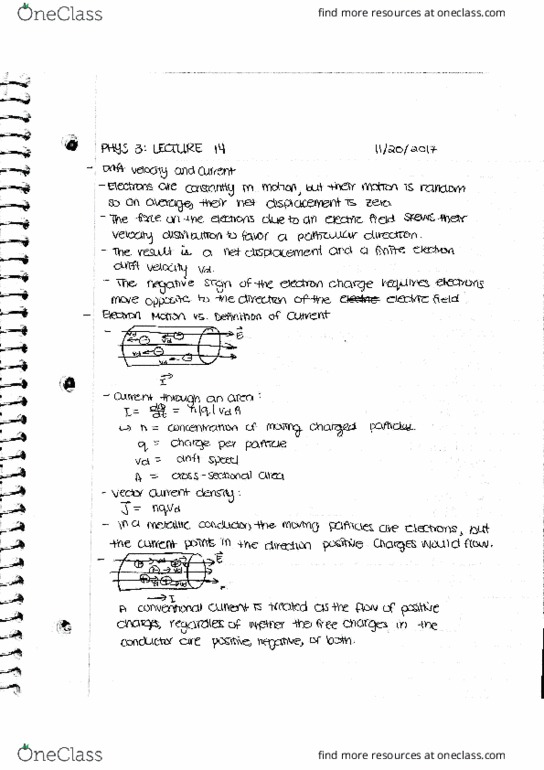 OneClass
find more resources at oneclass.com
PHYS 3: LECTURE 14
11/20/2017
- Drift velocity and Current
- Electrons are constantly in motion, but their motion is random
so on average, their net displacement is zero
- The force on the electrons due to an electric field skews their
velocity distribution to favor a particular direction.
- The result is a net displacement and a finite electron
drift velocity Vd.
- The negative sign of the electron charge requires electrons
move opposite to the direction of the electric electric field
- Electron Motion vs. Definition of Current
E
I
- Current through an area:
I = dQ/dt = n|q|VdA
↳ n = concentration of moving charged particles.
q = charge per particle
Vd = drift speed
A = cross-sectional area
- Vector Current density:
J = nqVd
- in a metallic conductor, the moving particles are electrons, but
the current points in the direction positive charges would flow.
E
→ I
A conventional current is treated as the flow of positive
charges, regardles of whether the free charges in the
conductor are positive, negative, or both.
OneClass
find more resources at oneclass.com